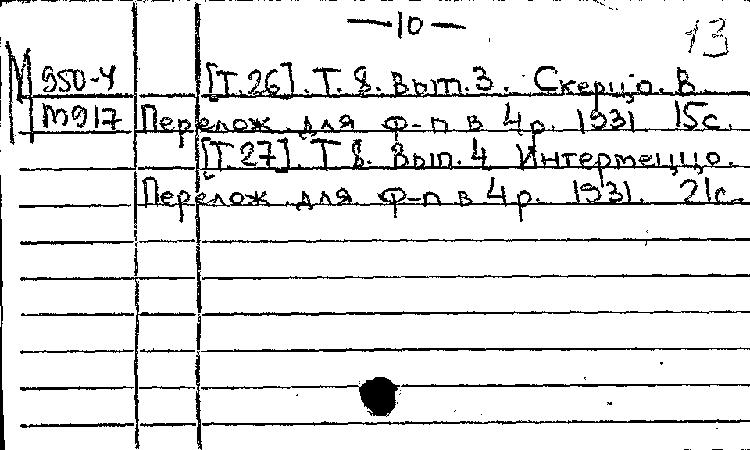 — 10 —
13
М 950-4 [Т.26]. Т. 8. Вып. 3. Скерцо. В.
М917 Перелож. для ф-п в 4 р. 1931. 15с.
[Т 27]. Т 8. Вып. 4 Интермеццо.
Перелож. для ф-п в 4 р. 1931. 21с.